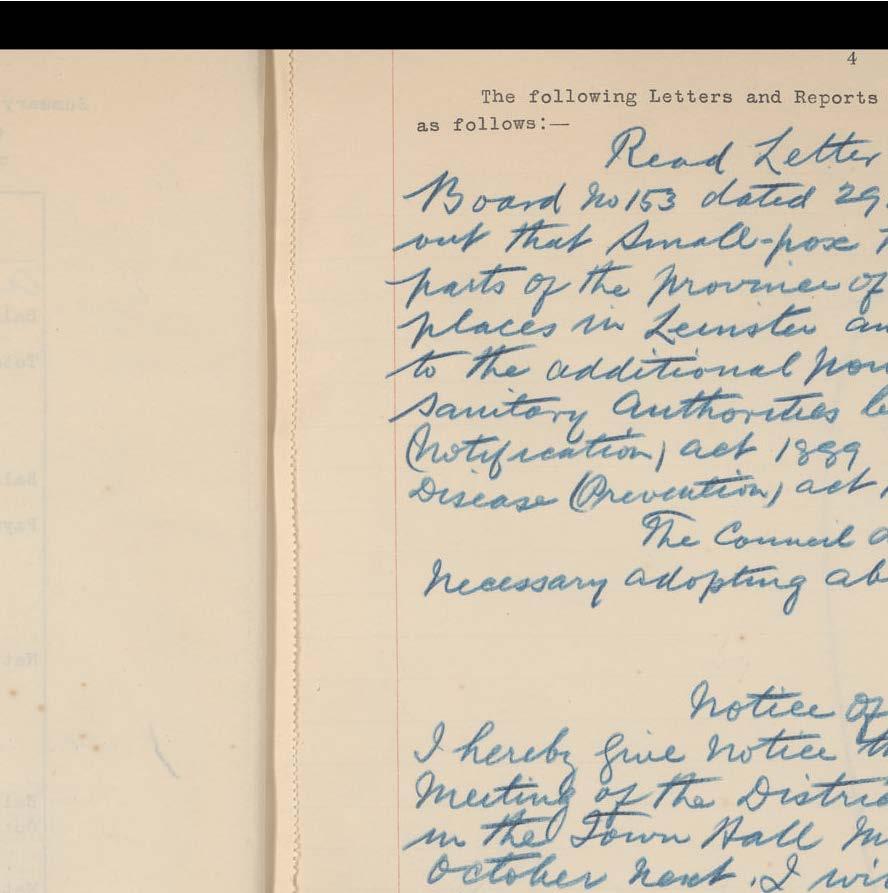 4
The following Letters and Reports
as follows:—
Read Letter
Board No 153 dated 29
out that Small-pox
parts of the province of
places in Leinster an
to the additional pow
Sanitary Authorities
(Notification) act 1889
Disease (Prevention) act
The Council
Necessary adopting ab
Notice of
I hereby give Notice th
Meeting of the Distric
in the Town Hall
October next. I wi